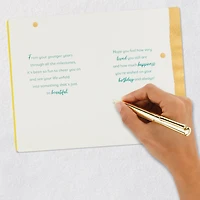 From your younger years
through all the milestones,
it's been an honor to watch you
and see your life unfold
into something that's just
so beautiful.
Hope you feel how very
loved you still are
and how much happiness
you're wished on your
birthday and always!